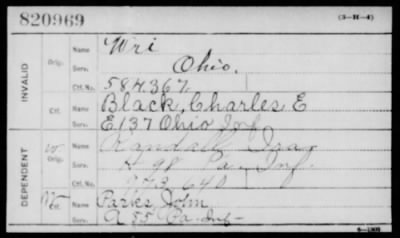 820969 (3-H-4)
INVALID
Orig. Name Wri
Serv. Ohio.
Ctf. No. 584.367.
Ctf. Name Black, Charles E
Serv. E 137 Ohio Inf
DEPENDENT
W Orig. Name Randall, Ira
Serv. 98 Pa. Inf.
Ctf. No. 640
Ctf. Name Parks, John
Serv. A 85 Pa. Inf